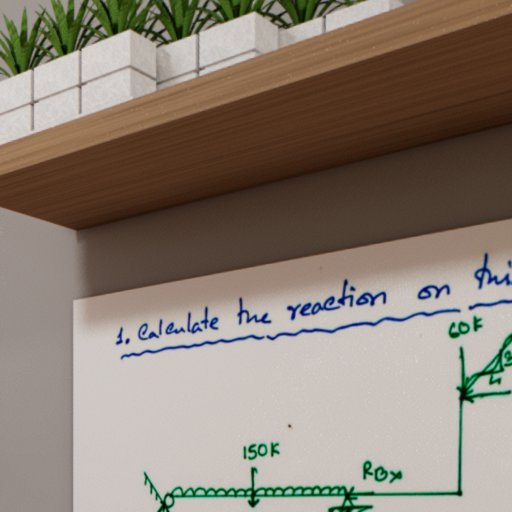 1. Calculate the reaction on thi
60K
3
4
150K
RBx